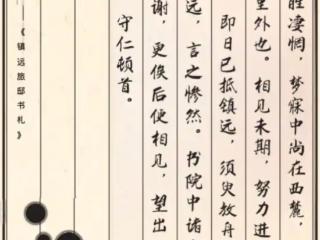 胜凄惘，梦寐中尚在西麓，
里外也。相见未期，努力进
即日已抵镇远，须臾放舟
远，言之惨然。书院中诸
谢，更俟后便相见，望出
守仁顿首。
——《镇远旅邸书札》